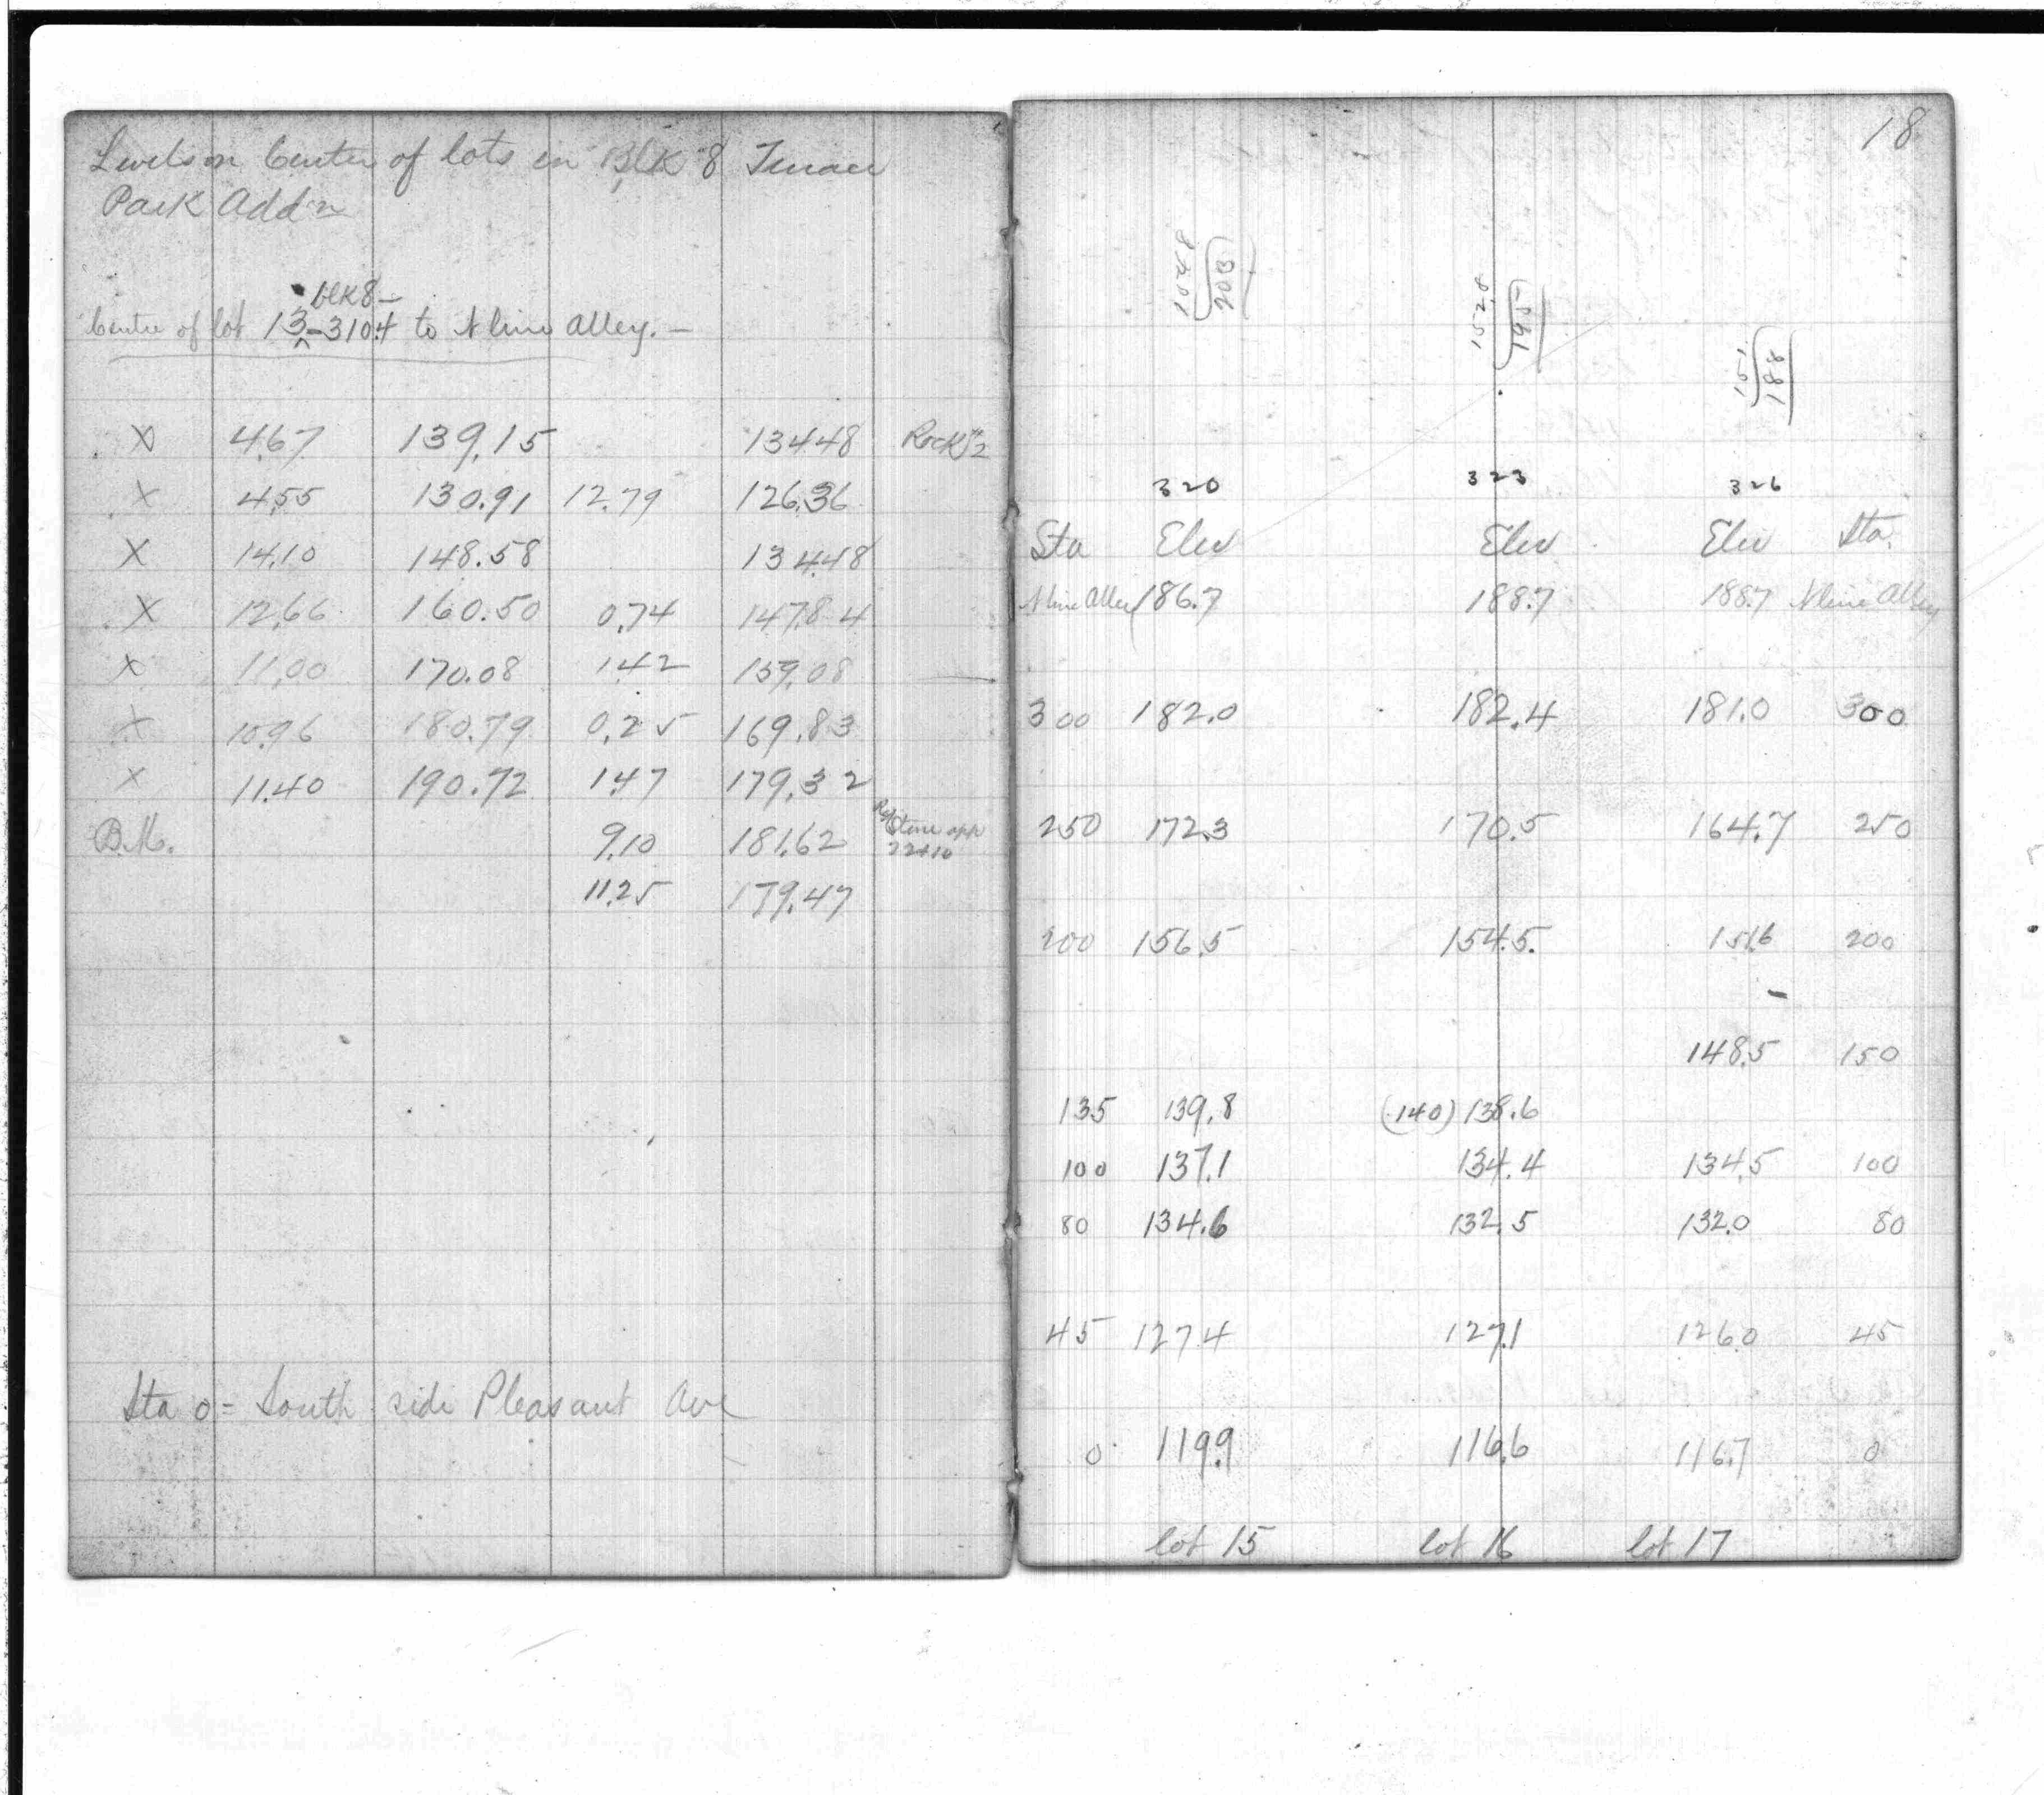 Levels on Center of lots in Blk 8 Terrace
Park Add'n
blk 8 –
Centre of lot 13 – 310.4 to N line Alley. –
X 4.67 139.15 134.48 Rock
X 4.55 130.91 12.79 126.36
X 14.10 148.58 134.48
X 12.66 160.50 0.74 147.84
X 11.00 170.08 1.42 159.08
X 10.96 180.79 0.25 169.83
X 11.40 190.72 1.47 179.32
B.M. 9.10 181.62 opp
22+10
11.25 179.47
Sta 0 = South side Pleasant Ave
18
203
10048
197
1528
188
151
320 323 326
Sta Elev Elev Elev Sta.
N line Alley 186.7 188.7 188.7 N line Alley
300 182.0 182.4 181.0 300
250 172.3 170.5 164.7 250
200 156.5 154.5 151.6 200
148.5 150
135 139.8 (140) 138.6
100 137.1 134.4 134.5 100
80 134.6 132.5 132.0 80
45 127.4 127.1 126.0 45
0 119.9 116.6 116.7 0
lot 15 lot 16 lot 17